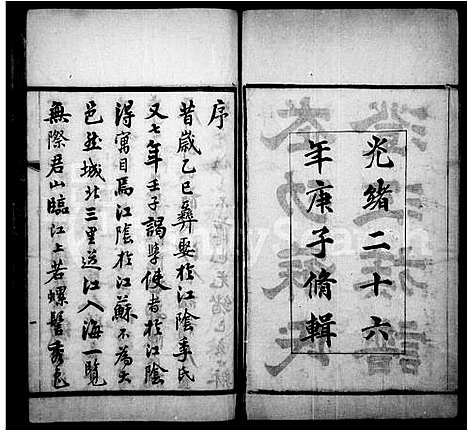 光緒二十六
年庚子脩輯
序
昔歲乙巳彝娶於江陰季氏
又七年壬子謁學使者於江陰
得寓目焉江陰於江蘇不為大
邑然城北三里送江入海一覽
無際君山臨江上若螺髻秀色